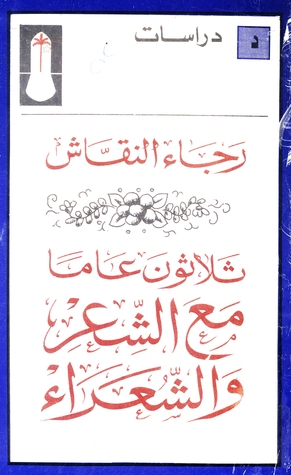 د دراسات
رجاء النقاش
ثلاثون عاما
مع الشعر
والشعراء